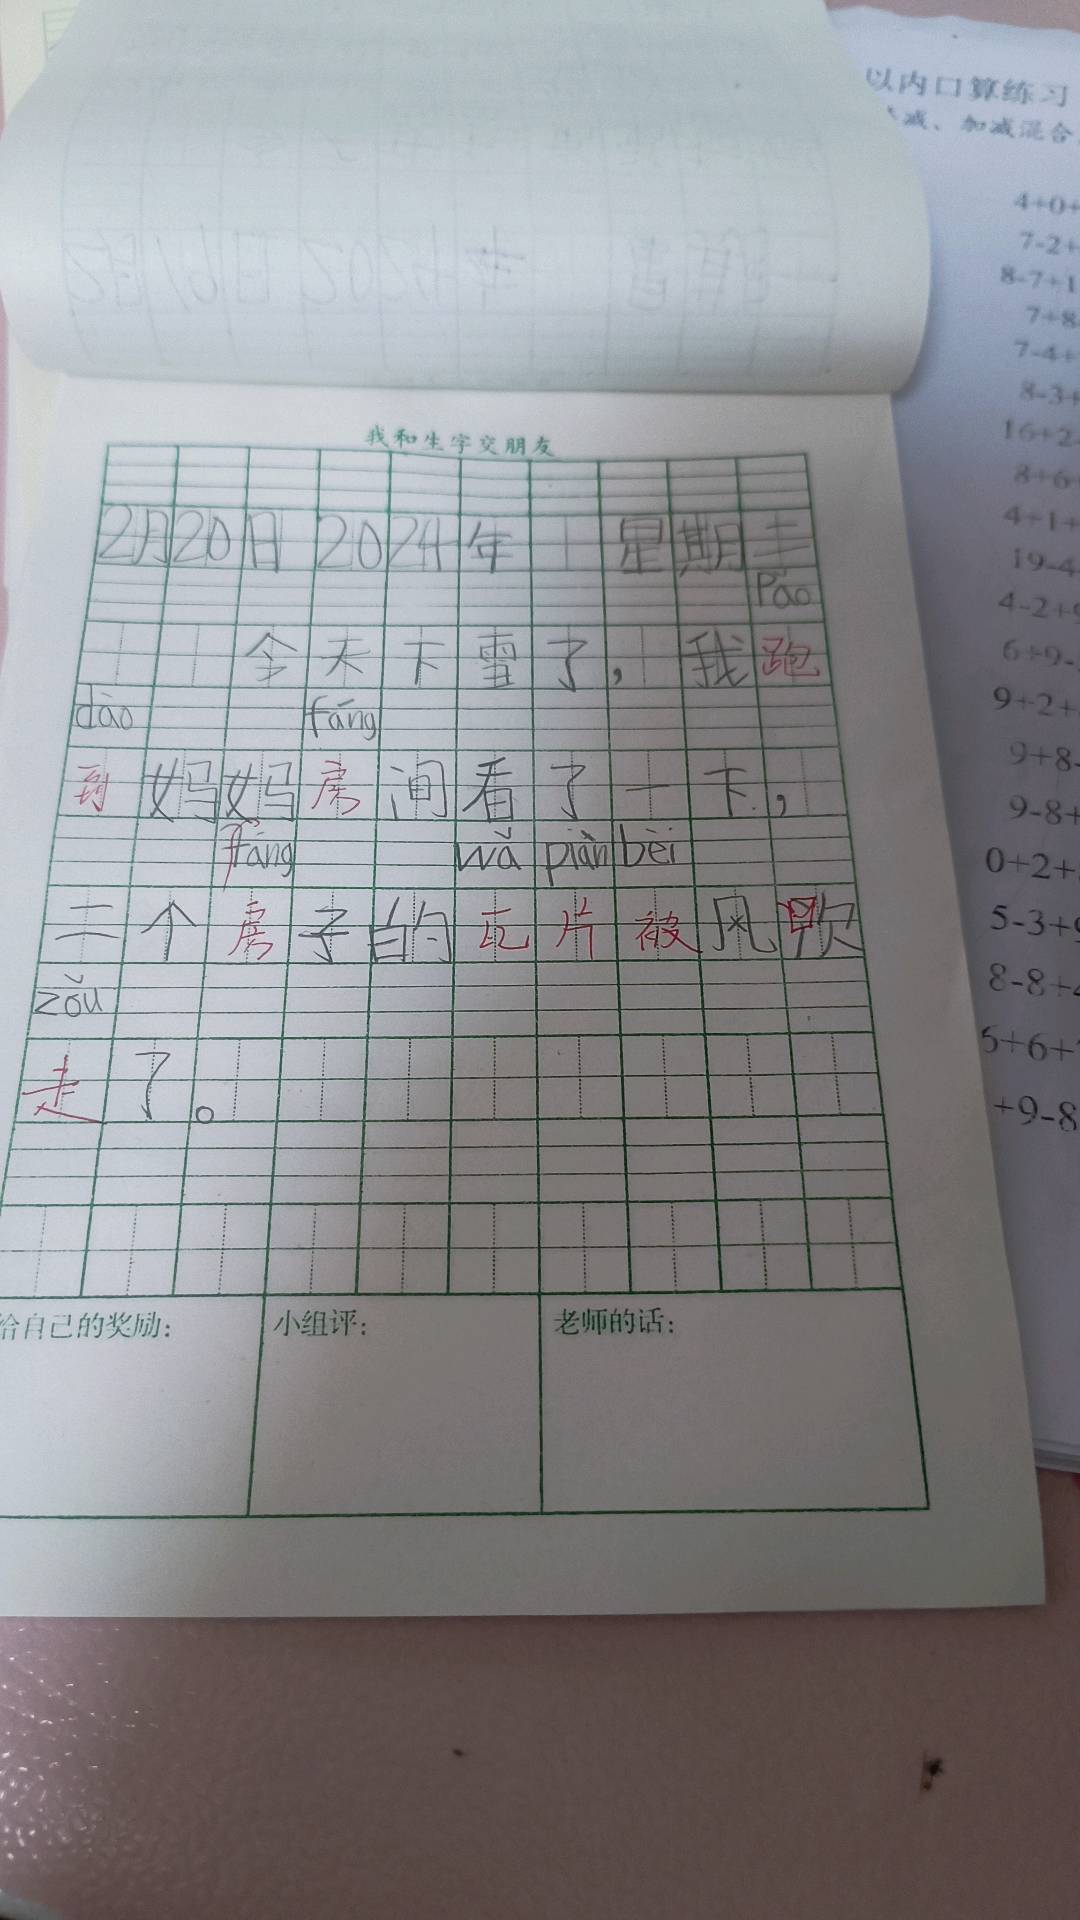 以内口算练习
减、加减混合
4+0+
7-2+
8-7+1
7+8-
7-4+
8-3+
16+2-
8+6+
4+1+
19-4
4-2+9
6+9-
9+2+
9+8-
9-8+
0+2+
5-3+9
8-8+4
5+6+
+9-8
我和生字交朋友
2月20日 2024年 星期二
Pǎo
今天下雪了,我跑
dào fáng
到妈妈房间看了一下,
fáng wǎ piàn bèi
二个房子的瓦片被风吹
zǒu
走了。
给自己的奖励: 小组评: 老师的话: